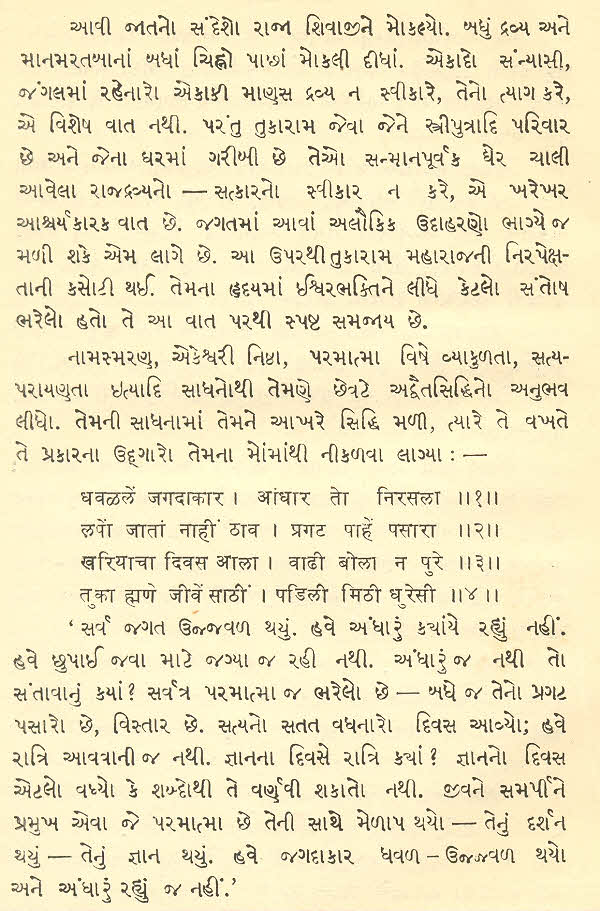 આવી જાતનો સંદેશો રાજા શિવાજીને મોકલ્યો. બધું દ્રવ્ય અને
માનમરતબાનાં બધાં ચિહ્નો પાછાં મોકલી દીધાં. એકાદો સંન્યાસી,
જંગલમાં રહેનારો એકાકી માણસ દ્રવ્ય ન સ્વીકારે, તેનો ત્યાગ કરે,
એ વિશેષ વાત નથી. પરંતુ તુકારામ જેવા જેને સ્ત્રીપુત્રાદિ પરિવાર
છે અને જેના ઘરમાં ગરીબી છે તેઓ સન્માનપૂર્વક ઘેર ચાલી
આવેલા રાજદ્રવ્યનો — સત્કારનો સ્વીકાર ન કરે, એ ખરેખર
આશ્ચર્યકારક વાત છે. જગતમાં આવાં અલૌકિક ઉદાહરણો ભાગ્યે જ
મળી શકે એમ લાગે છે. આ ઉપરથી તુકારામ મહારાજની નિરપેક્ષ-
તાની કસોટી થઈ. તેમના હૃદયમાં ઈશ્વરભક્તિને લીધે કેટલો સંતોષ
ભરેલો હતો તે આ વાત પરથી સ્પષ્ટ સમજાય છે.
નામસ્મરણ, એકેશ્વરી નિષ્ઠા, પરમાત્મા વિષે વ્યાકુળતા, સત્ય-
પરાયણતા ઇત્યાદિ સાધનોથી તેમણે છેવટે અદ્વૈતસિદ્ધિનો અનુભવ
લીધો. તેમની સાધનામાં તેમને આખરે સિદ્ધિ મળી, ત્યારે તે વખતે
તે પ્રકારના ઉદ્ગારો તેમના મોંમાંથી નીકળવા લાગ્યા : —
धवळलें जगदाकार । आंधार तो निरसला ॥१॥
लपों जातां नाहीं ठाव । प्रगट पाहें पसारा ॥२॥
खरियाचा दिवस आला । वाढी बोला न पुरे ॥३॥
तुका ह्मणे जीवें साठीं । पडिली मिठी धुरेसी ॥४॥
‘ સર્વ જગત ઉજ્જવળ થયું. હવે અંધારું ક્યાંયે રહ્યું નહીં.
હવે છુપાઈ જવા માટે જગ્યા જ રહી નથી. અંધારું જ નથી તો
સંતાવાનું ક્યાં? સર્વત્ર પરમાત્મા જ ભરેલો છે — બધે જ તેનો પ્રગટ
પસારો છે, વિસ્તાર છે. સત્યનો સતત વધનારો દિવસ આવ્યો; હવે
રાત્રિ આવવાની જ નથી. જ્ઞાનના દિવસે રાત્રિ ક્યાં? જ્ઞાનનો દિવસ
એટલો વધ્યો કે શબ્દોથી તે વર્ણવી શકાતો નથી. જીવને સમર્પીને
પ્રમુખ એવા જે પરમાત્મા છે તેની સાથે મેળાપ થયો — તેનું દર્શન
થયું — તેનું જ્ઞાન થયું. હવે જગદાકાર ધવળ – ઉજ્જવળ થયો
અને અંધારું રહ્યું જ નહીં.’